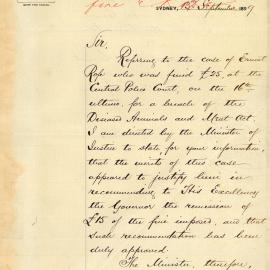 fine
SYDNEY, 15 September 1899
Sir,
Referring to the case of Ernest
Rop who was fined £25, at the
Central Police Court, on the 16th
ultimo, for a breach of the
Diseased Animals and Meat Act,
I am directed by the Minister of
Justice to state for your information,
that the merits of this case
appeared to justify him in
recommending to His Excellency
the Governor the remission of
£15 of the fine imposed, and that
such recommendation has been
duly approved.
The Minister, therefore,